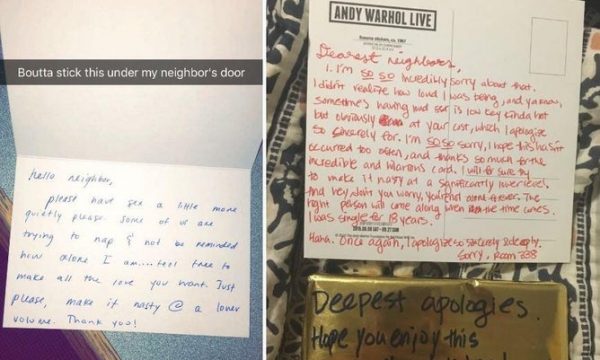 Boutta stick this under my neighbor's door
hello neighbor,
please have sex a little more
quietly please. Some of us are
trying to nap & not be reminded
how alone I am.... feel free to
make all the love you want. Just
please, make it nasty @ a lower
volume. Thank you!
ANDY WARHOL LIVE
Dearest neighbors,
1. I'm so so incredibly sorry about that.
I didn't realize how loud I was being, and ya know,
sometimes having loud sex is low key kinda hot
but obviously at your cost, which I apologize
so sincerely for. I'm so so sorry, I hope this hasn't
occurred too often, and thanks so much for the
incredible and hilarious card. I will for sure try
to make it nasty at a significantly lower level.
And hey, don't you worry, you're not alone forever. The
right person will come along when the time comes.
I was single for 18 years.
Haha. Once again, I apologize so sincerely & deeply.
Sorry, Room 338
Deepest apologies.
Hope you enjoy this